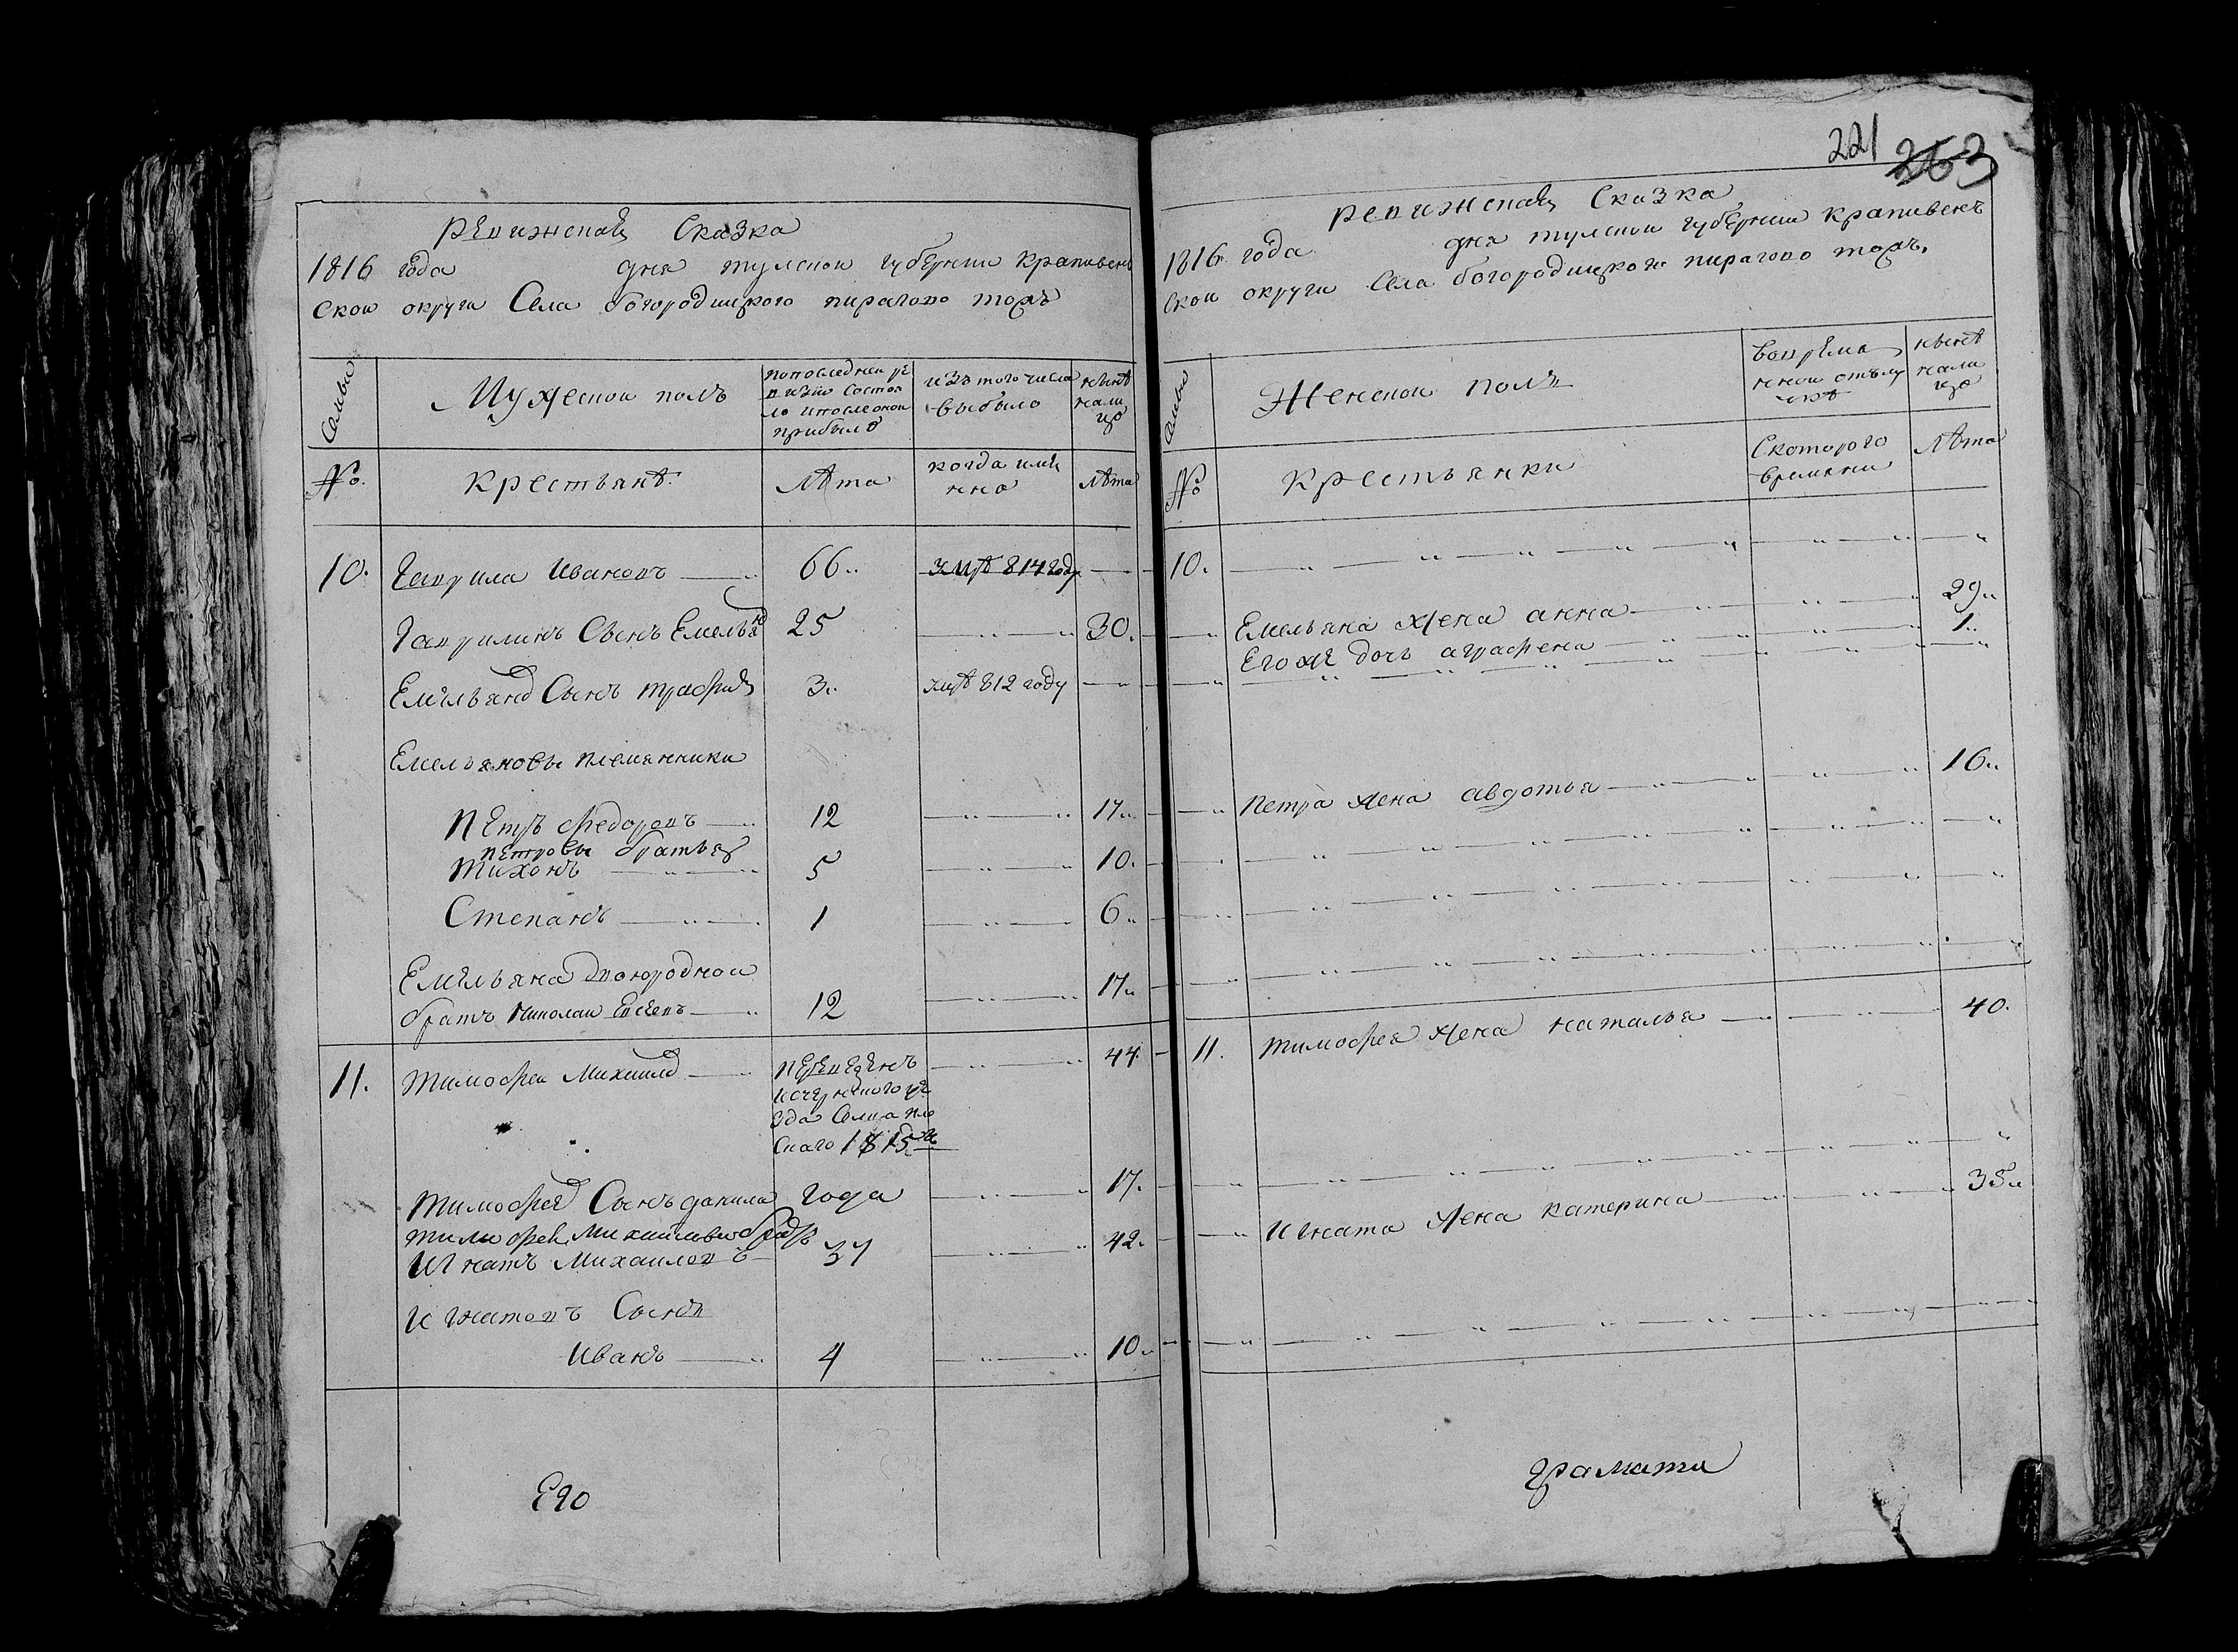 Ревижская Сказка
1816 года дня тулской губернии крапивен
ской округи Села богородицкого пирагово тожъ
Семьи
Мужеской полъ
попоследней ре
визіи состоя
ло ипослеоной
прибыло
изътогочисла
выбыло
нынѣ
нали
цо
№.
Крестьянѣ.
лѣта
когда имя
нно
лѣта
10. Гаврила Ивановъ 66 814 году
Гаврилинъ Сынъ Емельян 25 30.
Емельяна Сынъ трофи 3 812 году
Емельяновы племянники
Петръ Федоровъ 12 17
петровы братья
Тихонъ 5 10.
Степанъ 1 6
Емельяна двоюродной
братъ Николаи Евсеевъ 12 17
11. Тимофеи Михаил 44.
переведенъ
из
зда Селца
скаго 1815г
Тимофея Сынъ данила года 17.
тимофея Михайлова бра
Игнатъ Михаиловъ 37 42.
Игнатовъ Сынъ
Иванъ 4 10
Его
221 263
Ревижская Сказка
1816 года дня тулской губернии крапивенъ
ской округи Села богородицкого пирагово тожъ.
Семьи
Женской полъ
вовремя
нной отлу
чкѣ
нынѣ
нали
цо
№
Крестьянки
Скоторого
времяни
лѣта
10.
Емельяна жена анна 29
Его же дочь аграфена 1
Петра жена авдотья 16
11. Тимофея жена наталья 40.
Игната жена катерина 35
грамати